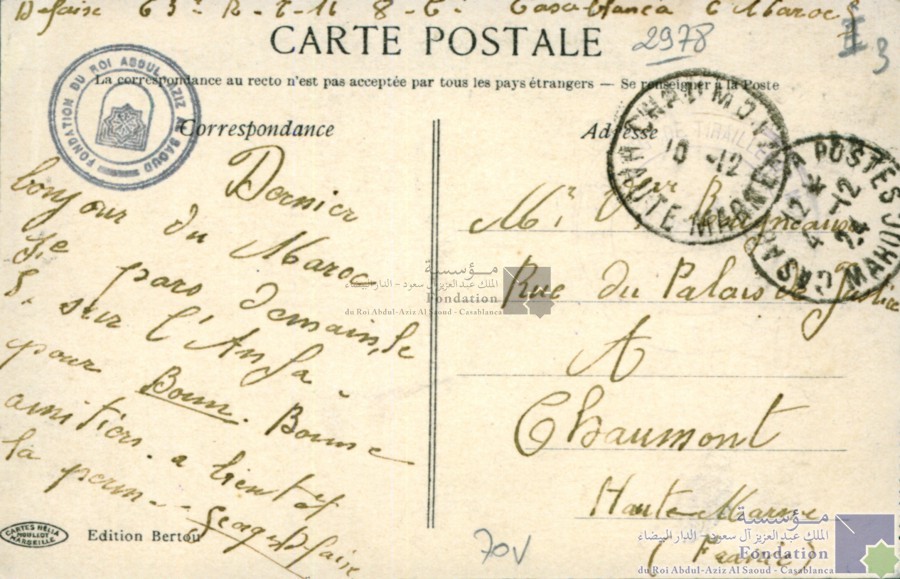 Defaix 63e R-T-M 8-Cie Casablanca Maroc
I
3
CARTE POSTALE
2978
La correspondance au recto n'est pas acceptée par tous les pays étrangers — Se renseigner à la Poste
FONDATION DU ROI ABDUL AZIZ AL SAOUD
Correspondance
Dernier
bonjour du Maroc
Je pars demain, le
5. sur l'Anfa
pour Bonn. Bonne
amitiés. a bientôt
la perm--
Georges Defaix
CARTES HELIA
MOULLOT
MARSEILLE
Edition Bertou
70V
Adresse
DE TIRAILL
CHAUMONT
10 -12
HAUTE MARNE
CASABLANCA POSTES
4-12
24
MAROC
Mr
Rue du Palais de Justice
A
Chaumont
Haute-Marne
(France)
مؤسسة
الملك عبد العزيز آل سعود - الدار البيضاء
Fondation
du Roi Abdul-Aziz Al Saoud - Casablanca
مؤسسة
الملك عبد العزيز آل سعود - الدار البيضاء
Fondation
du Roi Abdul-Aziz Al Saoud - Casablanca